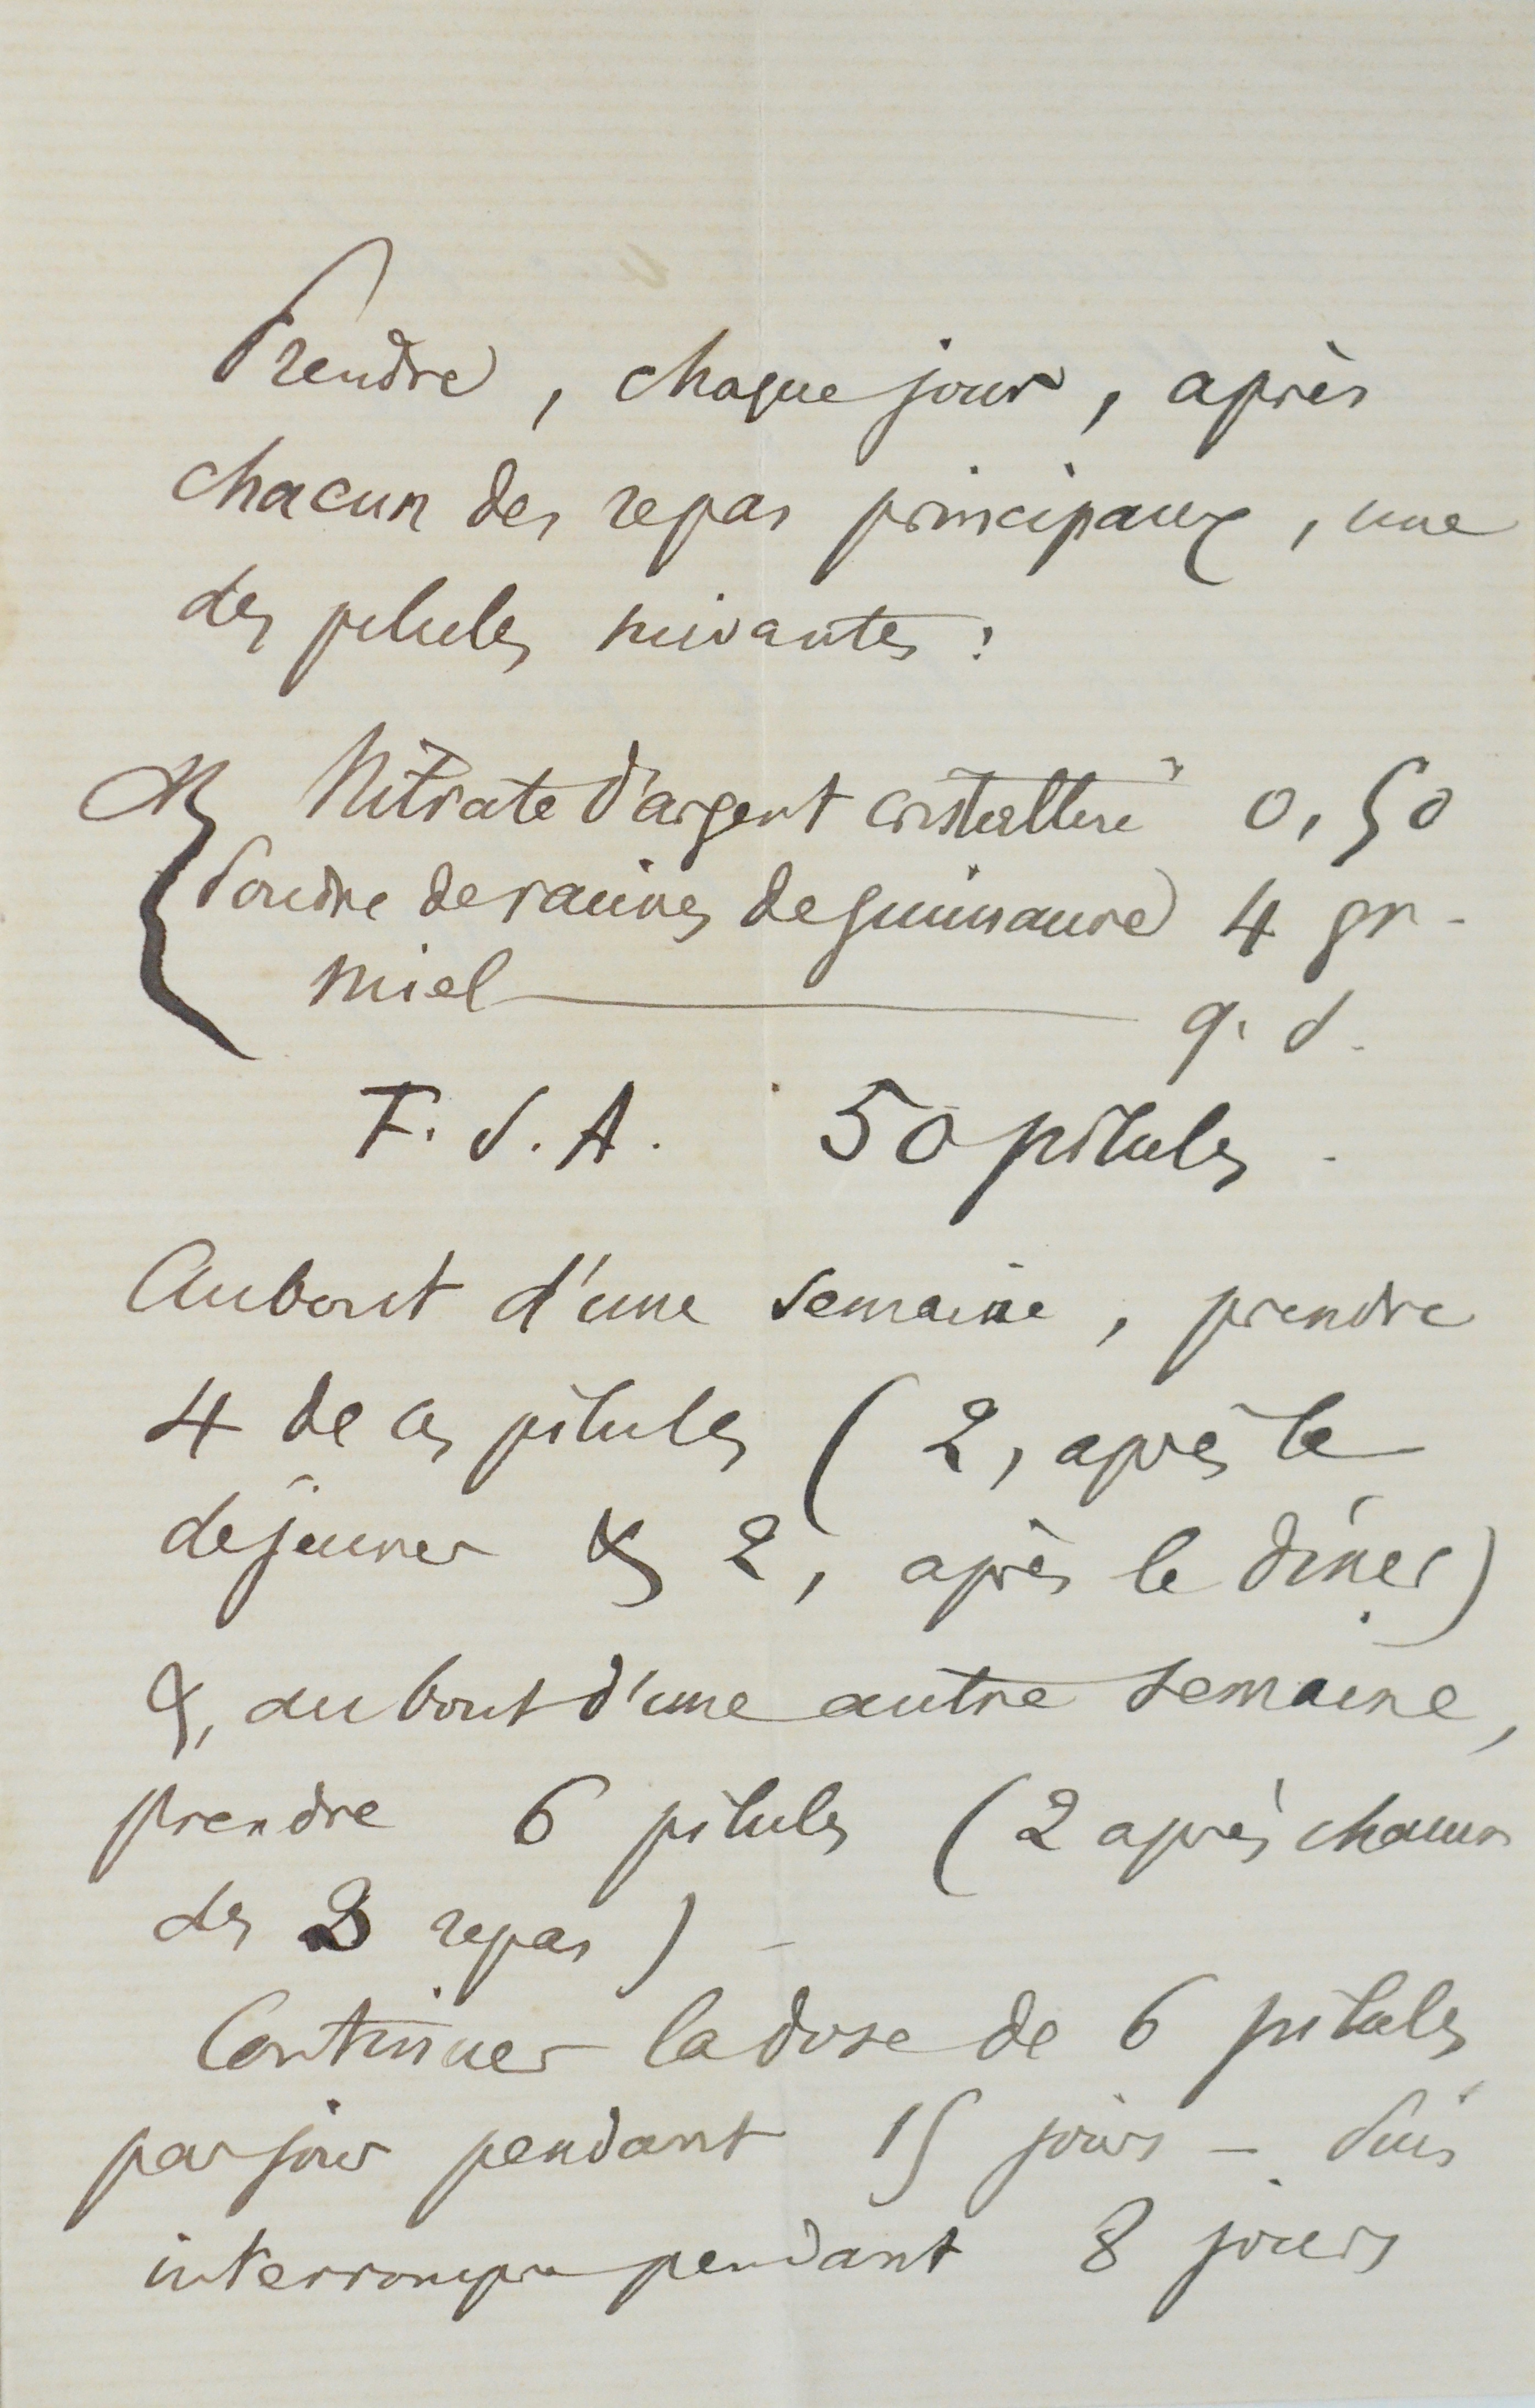 Prendre, chaque jour, après
chacun des repas principaux, une
des pilules suivantes :
Nitrate d'argent cristallisé 0,50
Poudre de racines de guimauve 4 gr.
Miel — q. s.
F. S. A. 50 pilules.
Au bout d'une semaine, prendre
4 de ces pilules (2, après le
déjeuner & 2, après le dîner)
&, au bout d'une autre semaine,
prendre 6 pilules (2 après chacun
des 3 repas) –
Continuer la dose de 6 pilules
par jour pendant 15 jours – Puis
interrompre pendant 8 jours